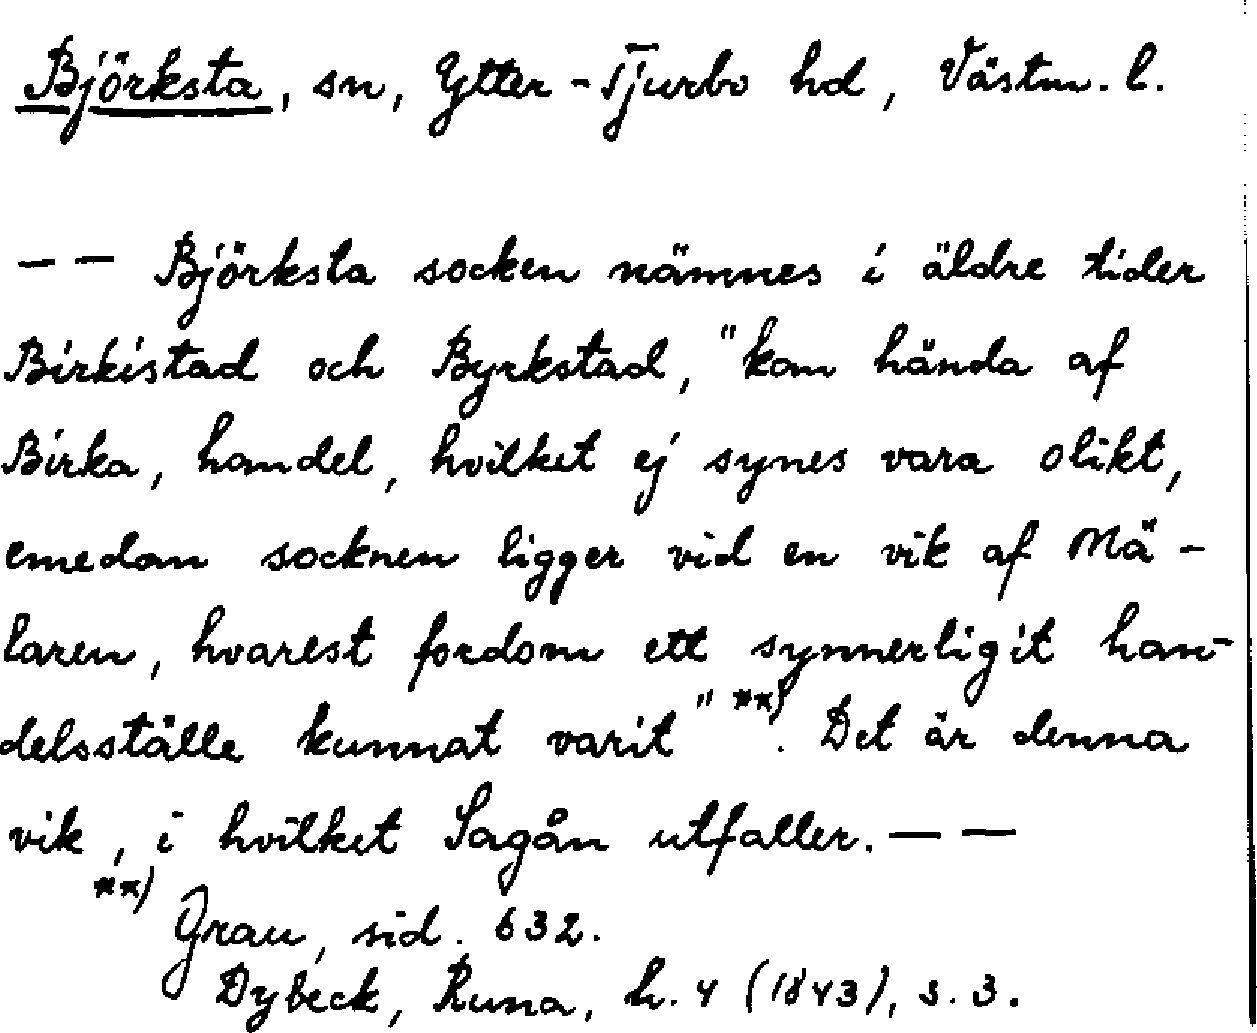 Björksta, sn, Ytter-Tjurbo hd, Västm. l.
— — Björksta socken nämnes i äldre tider
Birkistad och Byrkstad, "kan hända af
Birka, handel, hvilket ej synes vara olikt,
emedan socknen ligger vid en vik af Mä-
laren, hvarest fordom ett synnerligit han-
delsställe kunnat varit" **). Det är denna
vik, i hvilket Sagån utfaller. — —
**) Grau, sid. 632.
Dybeck, Runa, h. 4 (1843), s. 3.